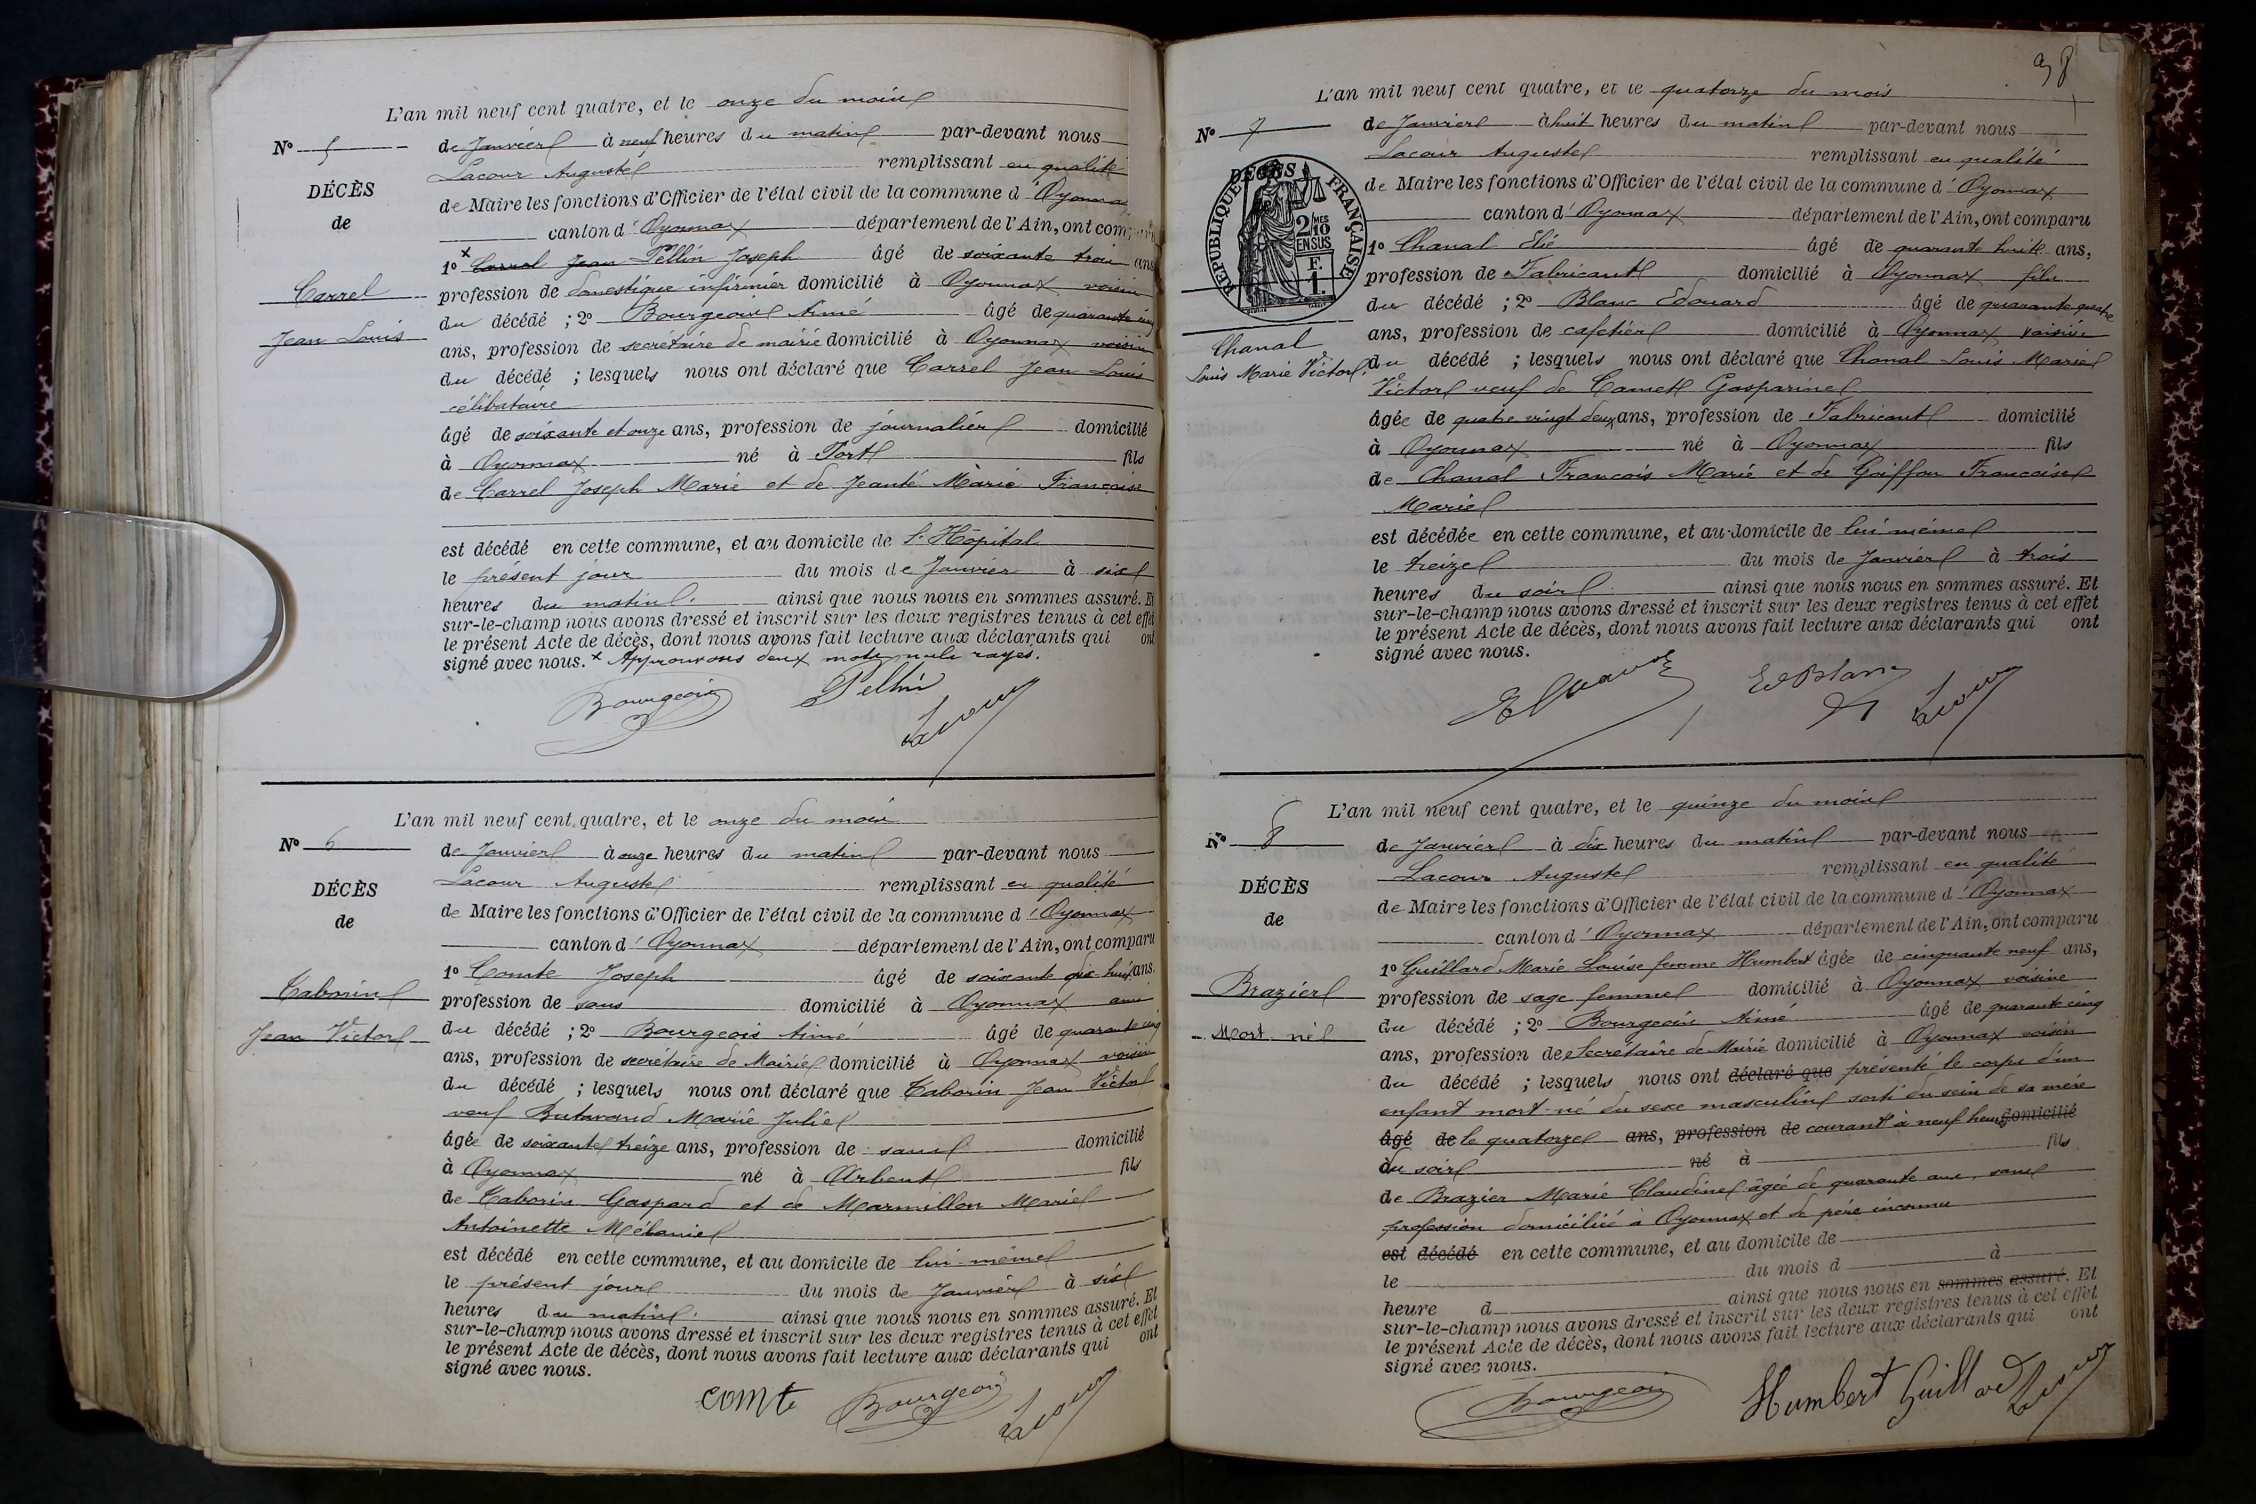 L'an mil neuf cent quatre, et le onze du mois
N° 5
de Janvier à neuf heures du matin par-devant nous
Lacour Auguste remplissant en qualité
DÉCÈS
de Maire les fonctions d'Officier de l'état civil de la commune d'Oyonnax
de
canton d'Oyonnax département de l'Ain, ont comparu
1° x Carrel Jean Pellin Joseph âgé de soixante trois ans
Carrel
profession de domestique infirmier domicilié à Oyonnax voisin
du décédé ; 2° Bourgeois Aimé âgé de quarante cinq
Jean Louis
ans, profession de secrétaire de mairie domicilié à Oyonnax voisin
du décédé ; lesquels nous ont déclaré que Carrel Jean Louis
célibataire
âgé de soixante et onze ans, profession de journalier domicilié
à Oyonnax né à Port fils
de Carrel Joseph Marie et de Jeanté Marie Françoise
est décédé en cette commune, et au domicile de l'Hôpital
le présent jour du mois de Janvier à six
heures du matin. ainsi que nous nous en sommes assuré. Et
sur-le-champ nous avons dressé et inscrit sur les deux registres tenus à cet effet
le présent Acte de décès, dont nous avons fait lecture aux déclarants qui ont
signé avec nous. x Approuvons deux mots nuls rayés.
Bourgeois Pellin Lacour
L'an mil neuf cent quatre, et le onze du mois
N° 6
de Janvier à onze heures du matin par-devant nous
Lacour Auguste remplissant en qualité
DÉCÈS
de Maire les fonctions d'Officier de l'état civil de la commune d'Oyonnax
de
canton d'Oyonnax département de l'Ain, ont comparu
1° Comte Joseph âgé de soixante dix huit ans.
Taborin
profession de sans domicilié à Oyonnax ami
du décédé ; 2° Bourgeois Aimé âgé de quarante cinq
Jean Victor
ans, profession de secrétaire de Mairie domicilié à Oyonnax voisin
du décédé ; lesquels nous ont déclaré que Taborin Jean Victor
veuf Butavand Marie Julie
âgée de soixante treize ans, profession de sans domicilié
à Oyonnax né à Arbent fils
de Taborin Gaspard et de Marmillon Marie
Antoinette Mélanie
est décédé en cette commune, et au domicile de lui-même
le présent jour du mois de Janvier à six
heures du matin. ainsi que nous nous en sommes assuré. Et
sur-le-champ nous avons dressé et inscrit sur les deux registres tenus à cet effet
le présent Acte de décès, dont nous avons fait lecture aux déclarants qui ont
signé avec nous.
comte Bourgeois Lacour
38
L'an mil neuf cent quatre, et le quatorze du mois
N° 7
de Janvier à huit heures du matin par-devant nous
Lacour Auguste remplissant en qualité
DÉCÈS
RÉPUBLIQUE FRANÇAISE
2 MES 10 EN SUS
F. 1.
de Maire les fonctions d'Officier de l'état civil de la commune d'Oyonnax
canton d'Oyonnax département de l'Ain, ont comparu
1° Chanal Elie âgé de quarante huit ans,
profession de Fabricant domicilié à Oyonnax fils
du décédé ; 2° Blanc Edouard âgé de quarante quatre
Chanal
ans, profession de cafetier domicilié à Oyonnax voisin
Louis Marie Victor
du décédé ; lesquels nous ont déclaré que Chanal Louis Marie
Victor veuf de Camet Gasparine
âgée de quatre vingt deux ans, profession de Fabricant domicilié
à Oyonnax né à Oyonnax fils
de Chanal François Marie et de Goiffon Françoise
Marie
est décédée en cette commune, et au domicile de lui-même
le treize du mois de Janvier à trois
heures du soir ainsi que nous nous en sommes assuré. Et
sur-le-champ nous avons dressé et inscrit sur les deux registres tenus à cet effet
le présent Acte de décès, dont nous avons fait lecture aux déclarants qui ont
signé avec nous.
E Chanal Ed Blanc Lacour
L'an mil neuf cent quatre, et le quinze du mois
N° 8
de Janvier à dix heures du matin par-devant nous
Lacour Auguste remplissant en qualité
DÉCÈS
de Maire les fonctions d'Officier de l'état civil de la commune d'Oyonnax
de
canton d'Oyonnax département de l'Ain, ont comparu
1° Guillard Marie Louise femme Humbert âgée de cinquante neuf ans,
Brazier
profession de sage femme domicilié à Oyonnax voisine
du décédé ; 2° Bourgeois Aimé âgé de quarante cinq
Mort né
ans, profession de Secrétaire de Mairie domicilié à Oyonnax voisin
du décédé ; lesquels nous ont déclaré que présenté le corps d'un
enfant mort-né du sexe masculin sorti du sein de sa mère
âgé de le quatorze ans, profession de courant à neuf heures domicilié
à du soir né à fils
de Brazier Marie Claudine âgée de quarante ans, sans
profession domiciliée à Oyonnax et de père inconnu
est décédé en cette commune, et au domicile de
le du mois d à
heure d ainsi que nous nous en sommes assuré. Et
sur-le-champ nous avons dressé et inscrit sur les deux registres tenus à cet effet
le présent Acte de décès, dont nous avons fait lecture aux déclarants qui ont
signé avec nous.
Bourgeois Humbert Guillard Lacour